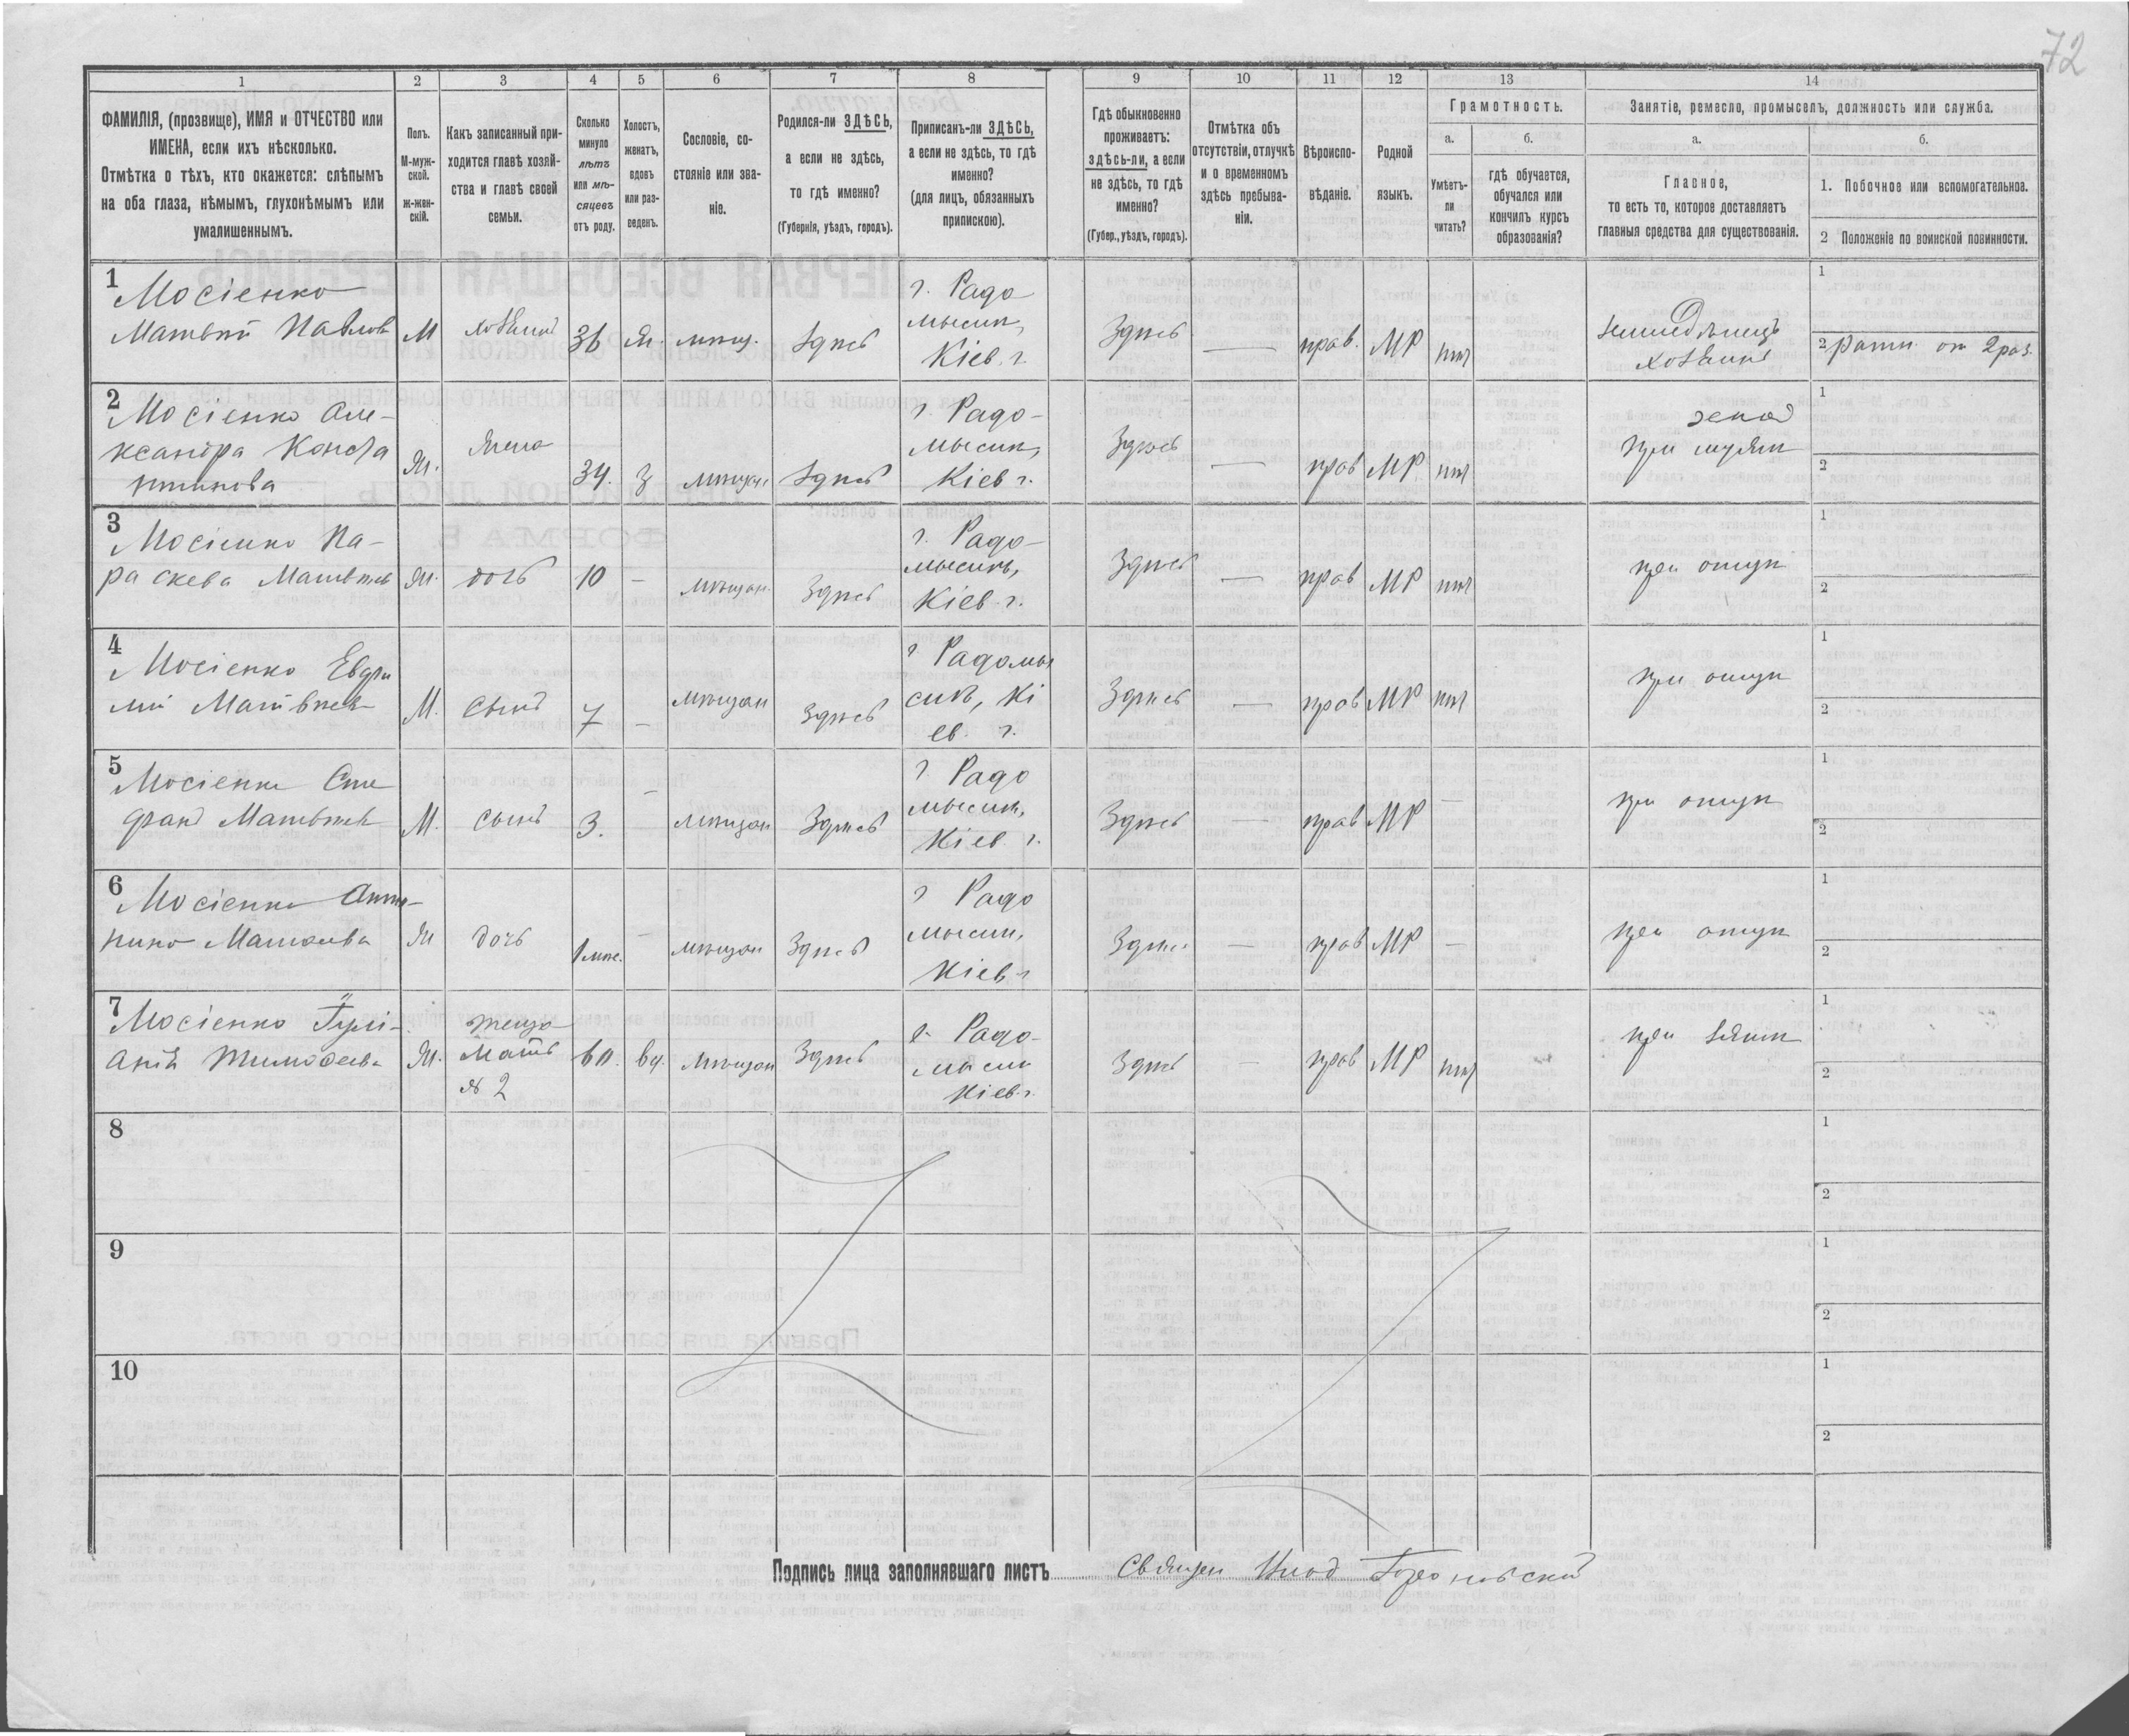 72
1 2 3 4 5 6 7 8 9 10 11 12 13 14
ФАМИЛІЯ, (прозвище), ИМЯ и ОТЧЕСТВО или
ИМЕНА, если ихъ нѣсколько.
Отмѣтка о тѣхъ, кто окажется: слѣпымъ
на оба глаза, нѣмымъ, глухонѣмымъ или
умалишеннымъ.
Полъ.
М-муж-
ской.
ж-жен-
скій.
Какъ записанный при-
ходится главѣ хозяй-
ства и главѣ своей
семьи.
Сколько
минуло
лѣтъ
или мѣ-
сяцевъ
отъ роду.
Холостъ,
женатъ,
вдовъ
или раз-
веденъ.
Сословіе, со-
стояніе или зва-
ніе.
Родился-ли ЗДѢСЬ,
а если не здѣсь,
то гдѣ именно?
(Губернія, уѣздъ, городъ).
Приписанъ-ли ЗДѢСЬ,
а если не здѣсь, то гдѣ
именно?
(для лицъ, обязанныхъ
припискою).
Гдѣ обыкновенно
проживаетъ:
здѣсь-ли, а если
не здѣсь, то гдѣ
именно?
(Губер., уѣздъ, городъ).
Отмѣтка объ
отсутствіи, отлучкѣ
и о временномъ
здѣсь пребыва-
ніи.
Вѣроиспо-
вѣданіе.
Родной
языкъ.
Грамотность.
а.
Умѣетъ-
ли
читать?
б.
гдѣ обучается,
обучался или
кончилъ курсъ
образованія?
Занятіе, ремесло, промыселъ, должность или служба.
а.
Главное,
то есть то, которое доставляетъ
главныя средства для существованія.
б.
1. Побочное или вспомогательное.
2 Положеніе по воинской повинности.
1
Мосіенко
Матвѣй Павлов
М
36
Ж.
мѣщ.
Здѣсь
г. Радо
мысль,
Кіев. г.
Здѣсь
—
прав.
МР
нѣт
хозяинъ
1
2 ратн. оп 2 раз.
2
Мосіенко Але-
ксандра Конста
нтинова
Ж.
Жена
34.
З
мѣщан
Здѣсь
г. Радо-
мысль,
Кіев г.
Здѣсь
—
прав
МР.
нѣт
при мужѣ
1
2
3
Мосіенко Па-
раскева Матвѣев
Ж.
дочь
10
—
мѣщан.
Здѣсь
г. Радо-
мысль,
Кіев. г.
Здѣсь
—
прав
МР
нѣт
при отцѣ
1
2
4
Мосіенко Евфи
мій Матвѣев
М.
сынъ
7
—
мѣщан
Здѣсь
г Радомы
сль, Кі
ев. г.
Здѣсь
—
прав
МР
нѣт
при отцѣ
1
2
5
Мосіенко Сте
фанъ Матвѣев
М.
сынъ
3.
—
мѣщан
Здѣсь
г. Радо
мысль,
Кіев. г.
Здѣсь
—
прав
МР
—
при отцѣ
1
2
6
Мосіенко Анто-
нина Матвѣева
Ж
дочь
1 мѣс.
—
мѣщан
Здѣсь
г Радо
мысль,
Кіев г
Здѣсь
—
прав
МР
—
при отцѣ
1
2
7
Мосіенко Іулі-
анія Тимофеева
Ж.
теща
мать
№ 2
60.
вд.
мѣщан
Здѣсь
г. Радо-
мысль
Кіев. г.
Здѣсь
—
прав
МР
нѣт
при зятѣ
1
2
8
1
2
9
1
2
10
1
2
Подпись лица заполнявшаго листъ Священ